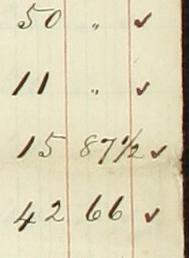 50 " ✓
11 " ✓
15 87½ ✓
42 66 ✓